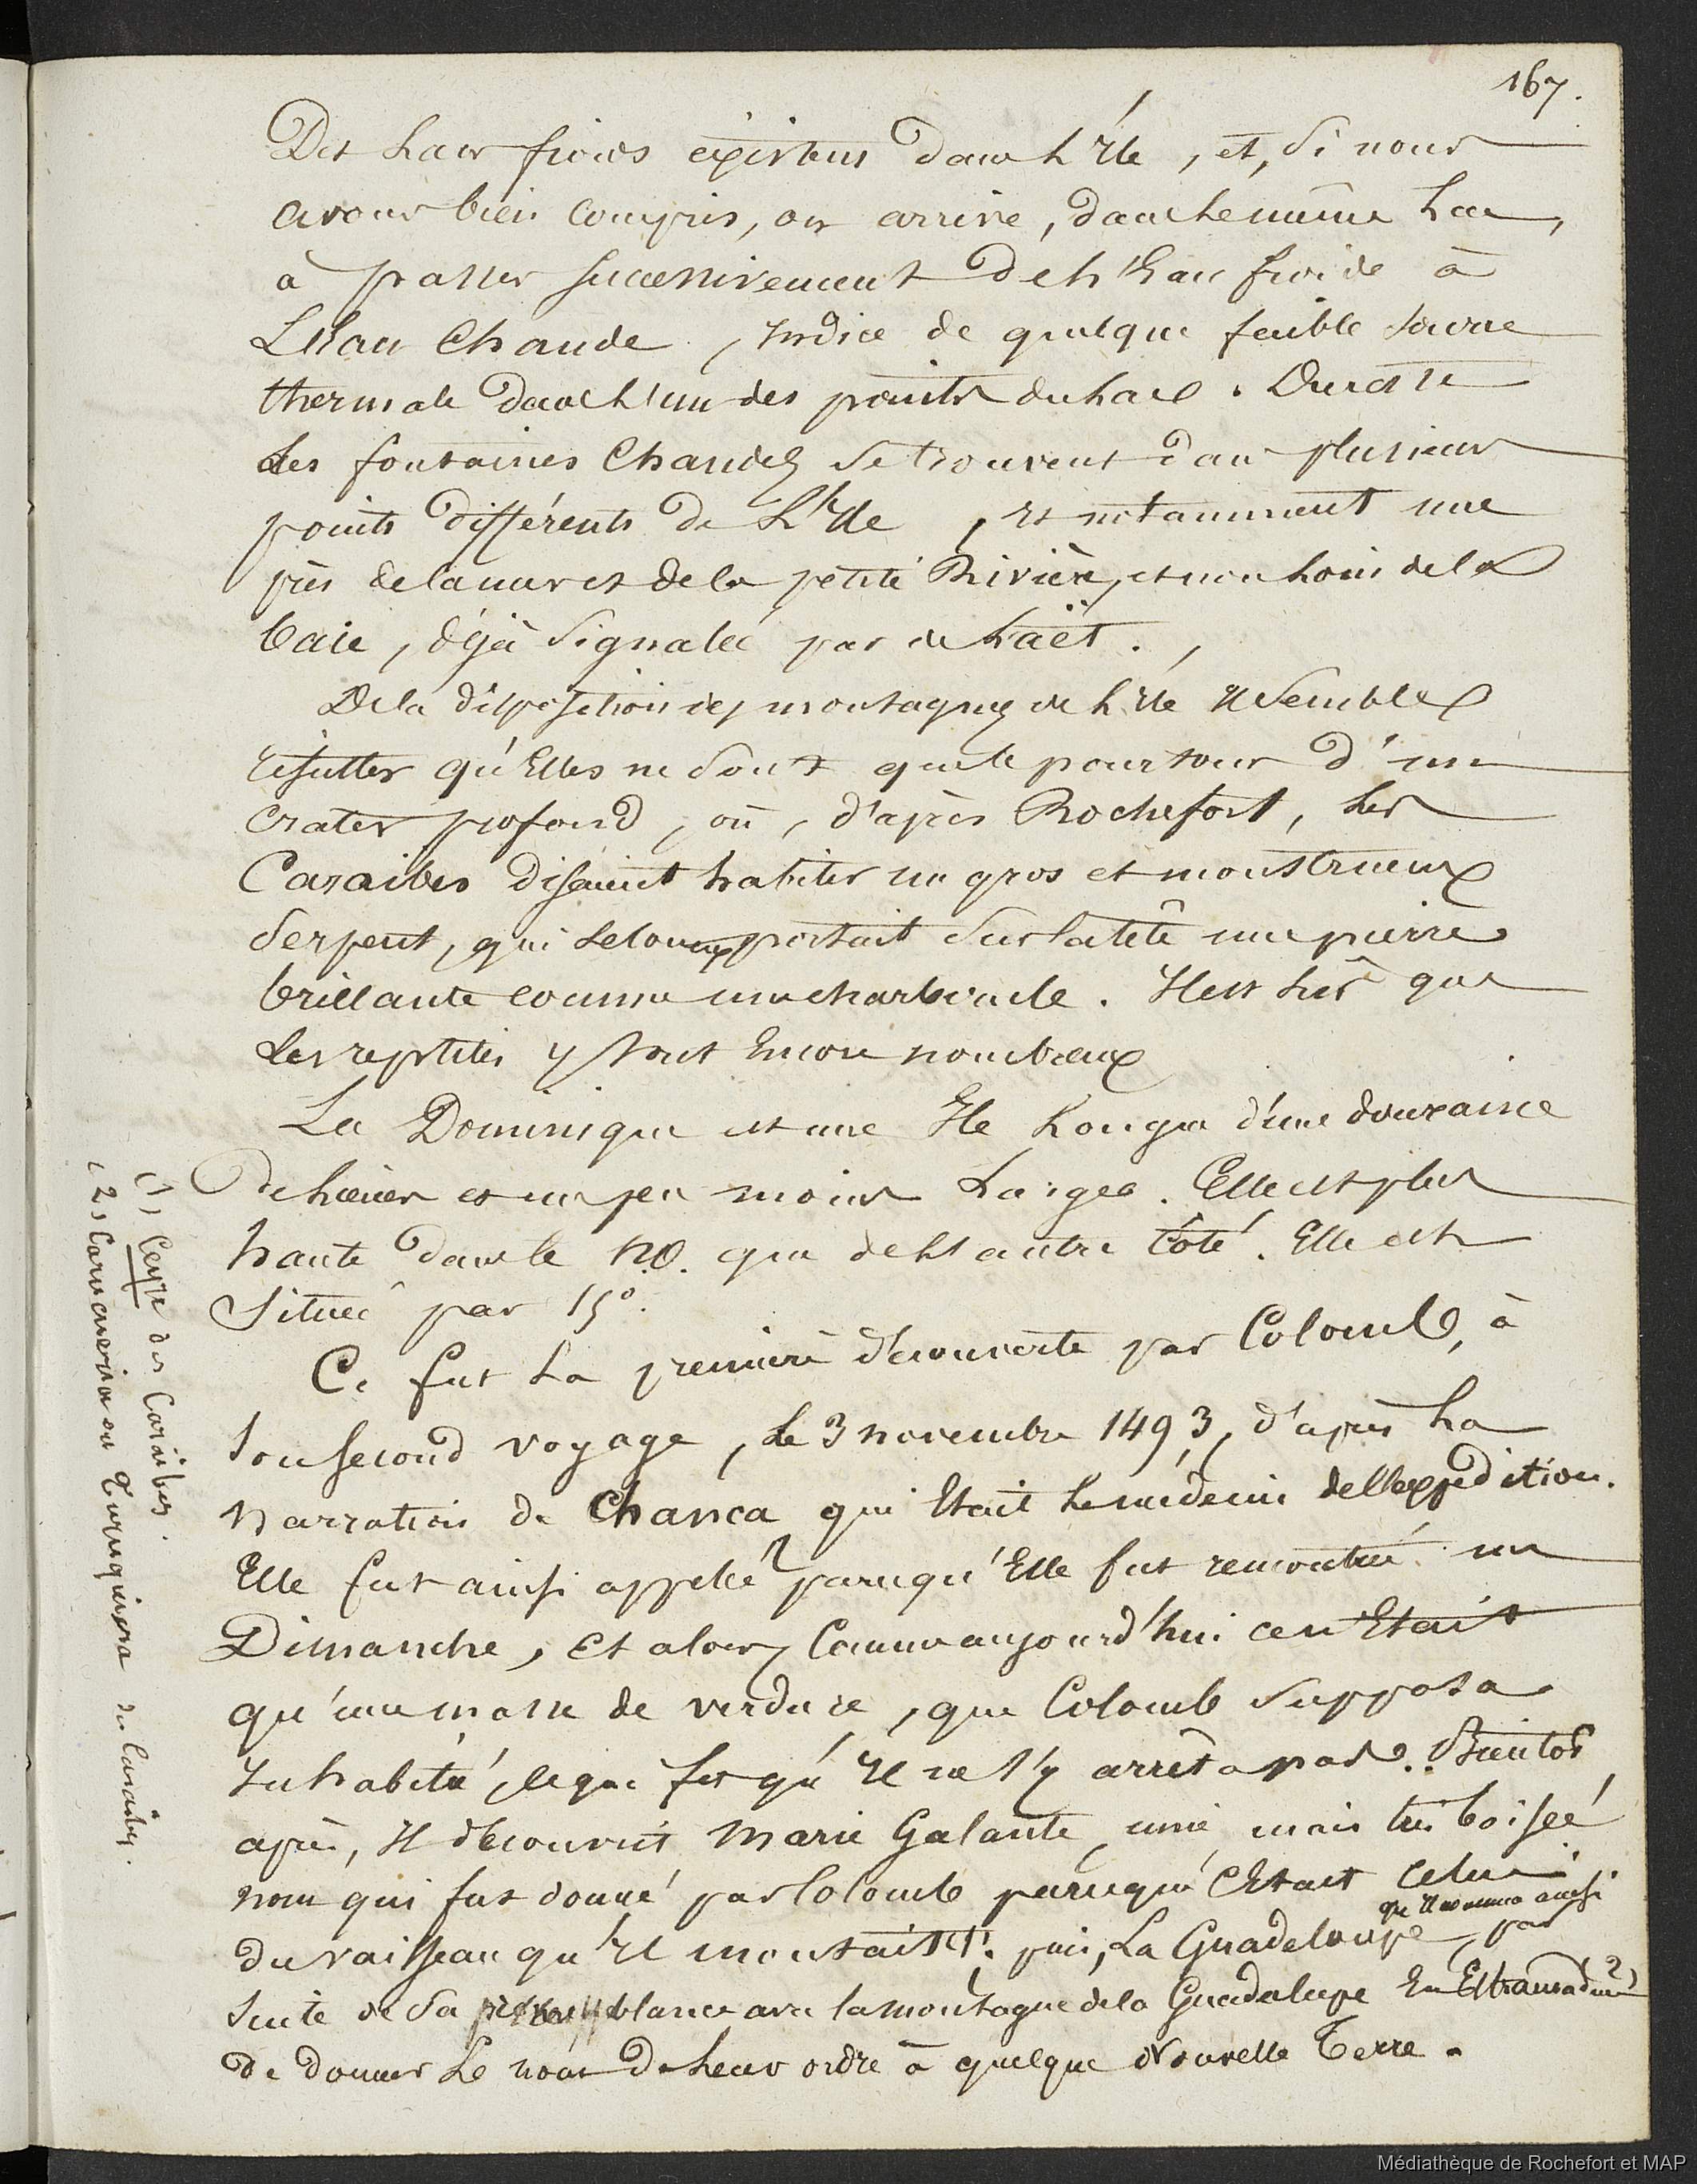 167.
Des Lacs froids existent dans L'Ile, et, Si nous
avons bien compris, on arrive, dans le même Lac,
à passer successivement de L'Eau froide à
L'Eau Chaude, Indice de quelque faible source
thermale dans L'un des points du Lac. Du reste
Les fontaines Chaudes Se trouvent dans plusieurs
points différents de L'Ile, et notamment une
près de la mer et de la petite Rivière, et non Loin de la
baie, déjà Signalée par de Laët.
De la disposition des montagnes de L'Ile Il Semble
résulter qu'Elles ne Sont que le pourtour d'un
crater profond, où, d'après Rochefort, Les
Caraibes disaient habiter un gros et monstrueux
Serpent, qui Selon eux portait Sur la tête une pierre
brillante comme une charboucle. Il est sûr que
Les reptiles y sont Encore nombreux
La Dominique est une Ile Longue d'une douzaine
de Lieues et un peu moins Large. Elle est plus
haute dans le N.O. que de L'autre Côté. Elle est
Située par 15°.
Ce fut La première découverte par Colomb, à
son second voyage, Le 3 novembre 1493, d'après La
narration de Chanca qui Etait Le médecin de l'Expédition.
Elle fut ainsi appelée parcequ'Elle fut rencontrée un
Dimanche, Et alors Comme aujourd'hui ce n'Etait
qu'une masse de verdure, que Colomb Supposa
Inhabitée, ce qui fit qu'Il ne s'y arrêta pas. Bientôt
après, Il découvrit Marie Galante, unie, mais très boisée
nom qui fut donné par Colomb parceque C'Etait Celui
du vaisseau qu'Il montait. puis, La Guadeloupe, par
qu'Il nomma ainsi
Suite de Sa ressemblance avec la montagne de la Guadelupe En Estramadure (2)
de donner Le nom de Leur ordre à quelque Nouvelle Terre.
(1) Ceyre des Caraibes.
(2) Carucueria ou Turuquiera des Caraibes.
Médiathèque de Rochefort et MAP